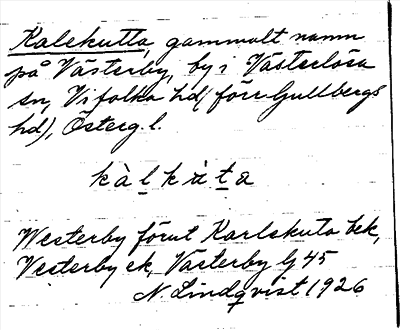 Kalekutta, gammalt namn
på Västerby, by i Västerlösa
sn, Vifolka hd (förr Gullbergs
hd), Österg. l.
kàl̲kùt̲a
Westerby förut Karlskuta bek,
Vesterby ek, Västerby G 45
N. Lindqvist 1926